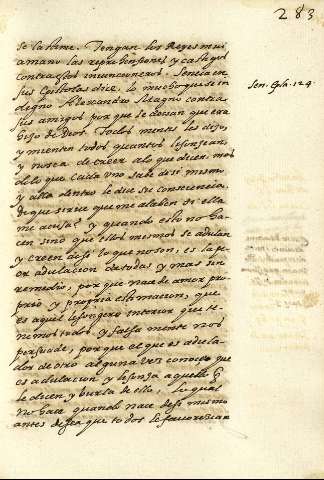 283
se la tiene. Tengan los Reyes mui
a mano las reprehensiones y castigos
contra estos
Sen. Epla. 124
sus Epistolas dice lo mucho que se in
digno Alexandro Magno contra
sus amigos por que le decian que era
hijo de Dios. Todos mentis les dijo
y mienten todos quantos lisonjean
y nunca de creer a lo que dicen mas
de lo que cada uno sabe de si mismo
y alla dentro le dice su consciencia.
de que sirve que me alaben si ella
me acusa? y quando esto no ha
cen sino que ellos mismos se adulan
y creen de si lo que no son, es la pe
or adulacion de todas y mas sin
remedio, por que nace de amor pro
prio y propria estimacion, que
es aquel lisongero interior que te
nemos todos y falsamente nos
persuade, por que el que es adula
dor de otro alguna vez conoce que
es adulacion y lisonja aquello q
le dicen y burla de ello, lo qual
no hace quando nace de si mismo
antes desea que todos le favorezcan